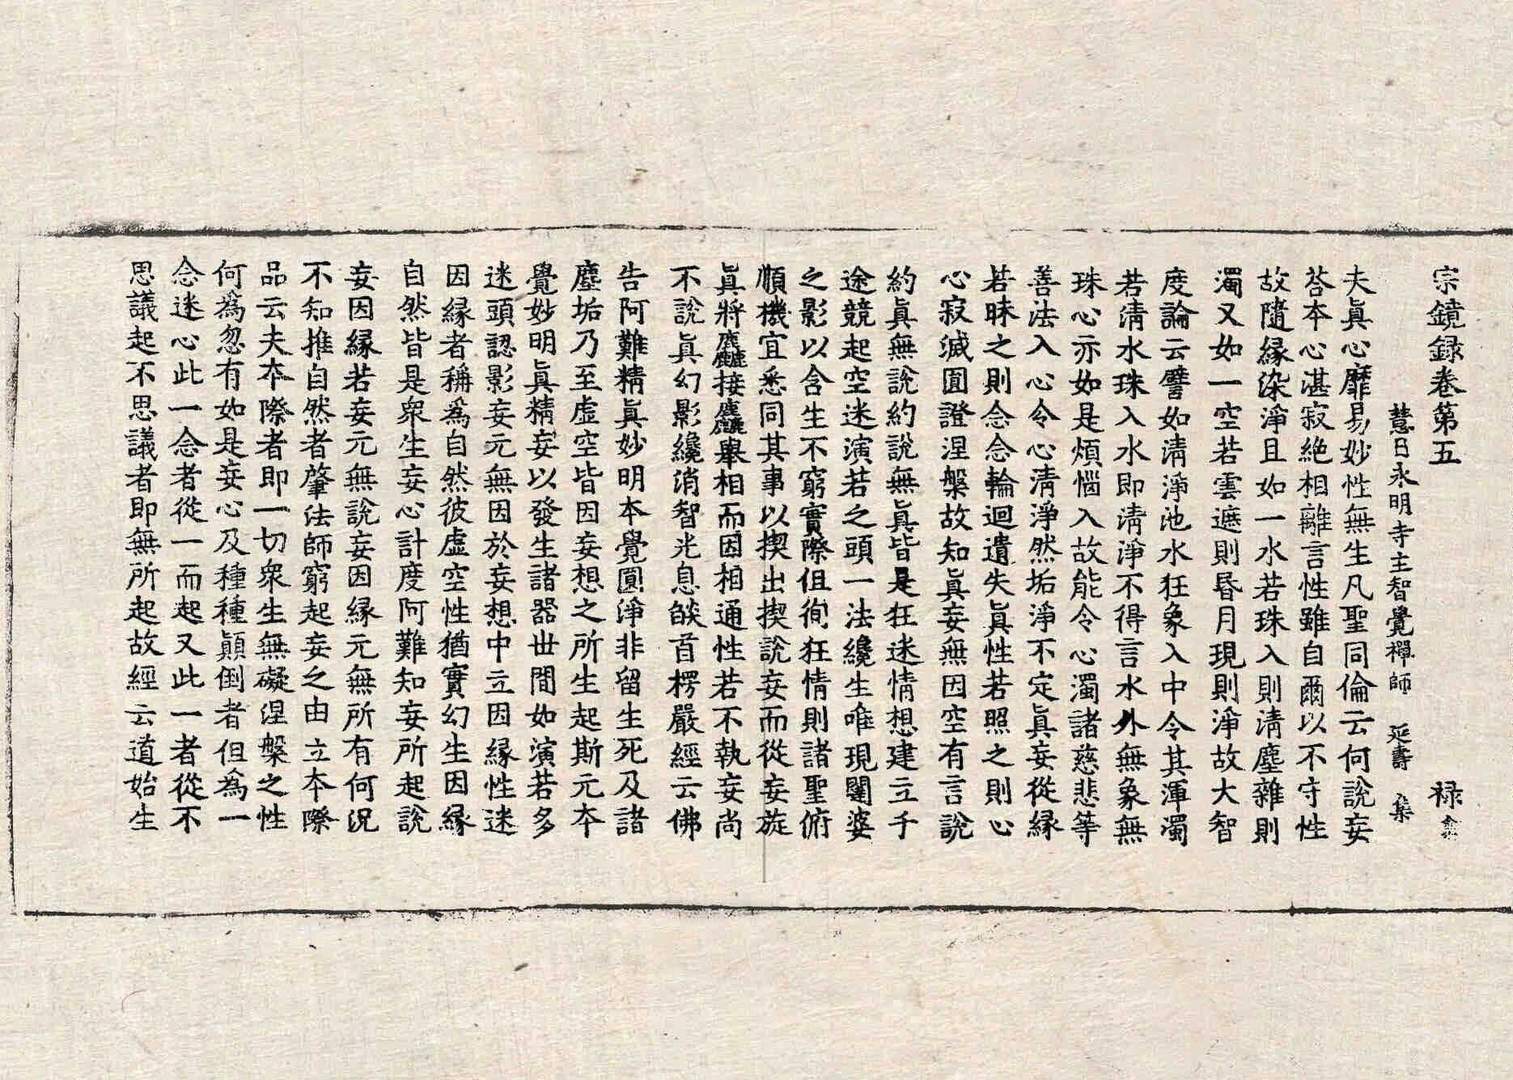 宗鏡録卷第五 禄
慧日永明寺主智覺禪師 延壽 集
夫眞心靡易妙性無生凡聖同倫云何說妄
荅本心湛寂絶相離言性雖自爾以不守性
故隨緣染淨且如一水若珠入則清塵雜則
濁又如一空若雲遮則昏月現則淨故大智
度論云譬如清淨池水狂象入中令其渾濁
若清水珠入水即清淨不得言水外無象無
珠心亦如是煩惱入故能令心濁諸慈悲等
善法入心令心清淨然垢淨不定眞妄從緣
若昧之則念念輪迴遺失眞性若照之則心
心寂滅圓證涅槃故知眞妄無因空有言說
約眞無說約說無眞皆是狂迷情想建立千
途競起空迷演若之頭一法纔生唯現闥婆
之影以含生不窮實際但徇狂情則諸聖俯
順機宜悉同其事以楔出楔說妄而從妄旋
眞將麤接麤舉相而因相通性若不執妄尚
不說眞幻影纔消智光息燄首楞嚴經云佛
告阿難精眞妙明本覺圓淨非留生死及諸
塵垢乃至虚空皆因妄想之所生起斯元本
覺妙明眞精妄以發生諸器世間如演若多
迷頭認影妄元無因於妄想中立因緣性迷
因緣者稱為自然彼虚空性猶實幻生因緣
自然皆是衆生妄心計度阿難知妄所起說
妄因緣若妄元無說妄因緣元無所有何況
不知推自然者肇法師窮起妄之由立本際
品云夫本際者即一切衆生無礙涅槃之性
何為忽有如是妄心及種種顛倒者但為一
念迷心此一念者從一而起又此一者從不
思議起不思議者即無所起故經云道始生